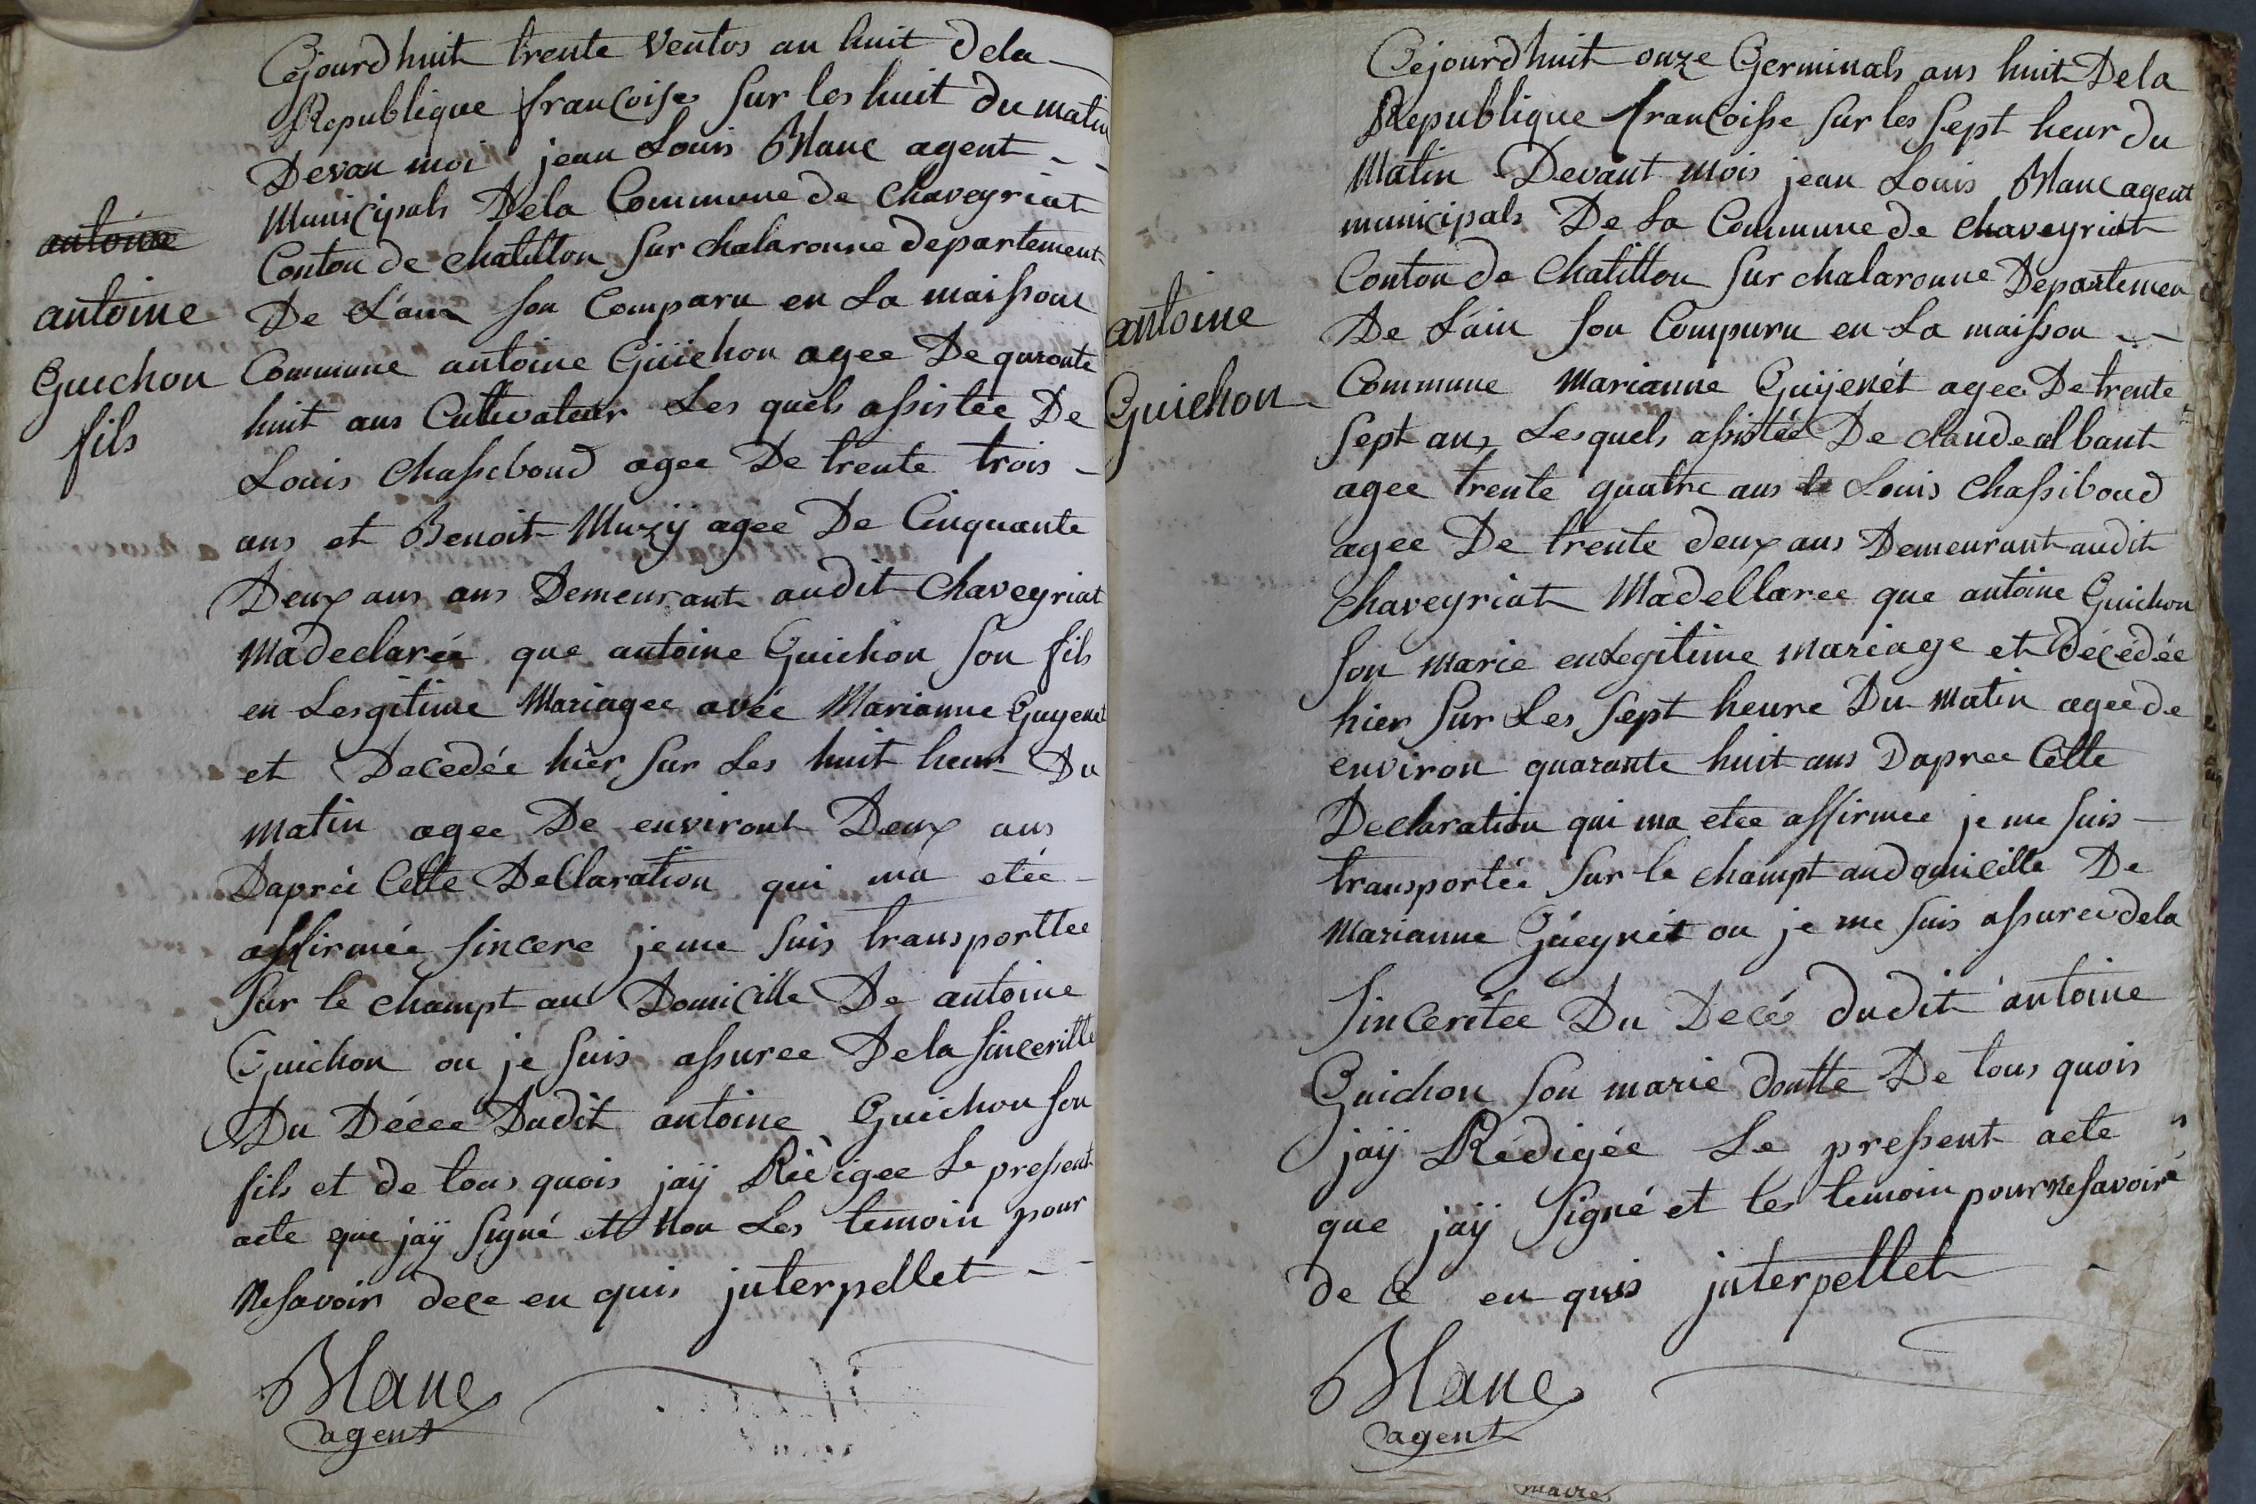 Cejourdhuit trente Ventos an huit dela
Republique francoises sur les huit du matin
Devan moi jean Louis Blanc agent
Municipals Dela Commune de Chaveyriat
Conton de chatillon sur chalaronne departement
De L'ain son Comparu en La maisson
Commune antoine Guichon agee De quronte
huit ans Cultivateur Les quels assistée De
Louis Chassiboud agee De trente trois
ans et Benoit Muzÿ agee De Cinquante
Deux ans ans Demeurant audit Chaveyriat
Madeclarée que antoine Guichon son fils
en Lesgitime Mariagee avée Marianne Guyenet
et Decedée hier sur Les huit heur Du
matin agee De environt Deux ans
Daprée Cette Declaration qui ma etée
affirmée sincere jeme suis transporttee
sur le champt au Domicille De antoine
Guichon ou je suis assuree Dela sinceritte
Du Décee Dudit antoine Guichon son
fils et de tous quois jaÿ Rédigee Le pressent
acte que jaÿ signé et Non Les temoin pour
Nesavoir dece en quis juterpellet
Blanc
agent
antoine
antoine
Guichon
fils
Cejourdhuit onze Germinals ans huit Dela
Republique francoisse sur les sept heur du
Matin Devant mois jean Louis Blanc agent
municipals De La Commune de Chaveyriat
Conton de Chatillon sur chalaronne Departemen
De L'ain son Compuru en La maisson
Commune Marianne Guijenét agee De trente
sept ans Lesquels assistée De claude albant
agee trente quatre ans Louis Chassiboud
agee De trente deux ans Demeurant audit
Chaveyriat Madellaree que antoine Guichon
son marie enLegitime mariage et décédée
hier sur Les sept heure Du matin agee de
environ quarante huit ans Dapree Cette
Declaration qui ma etee affirmee je me suis
transportée sur le champt audomicille De
Marianne Güeynét ou je me suis assuree dela
sinceritee Du Decés dudit antoine
Guichon son marie doutte De tous quois
jaÿ Rédigée Le pressent acte
que jaÿ signé et les temoin pour Nesavoiré
de ce en quis juterpellet
Blanc
agent
antoine
Guichon
maires